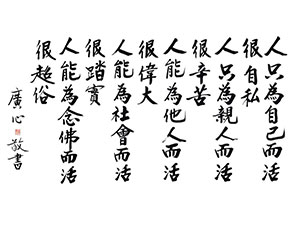 人只為自己而活
很自私
人只為親人而活
很辛苦
人能為他人而活
很偉大
人能為社會而活
很踏實
人能為念佛而活
很超俗
廣心敬書